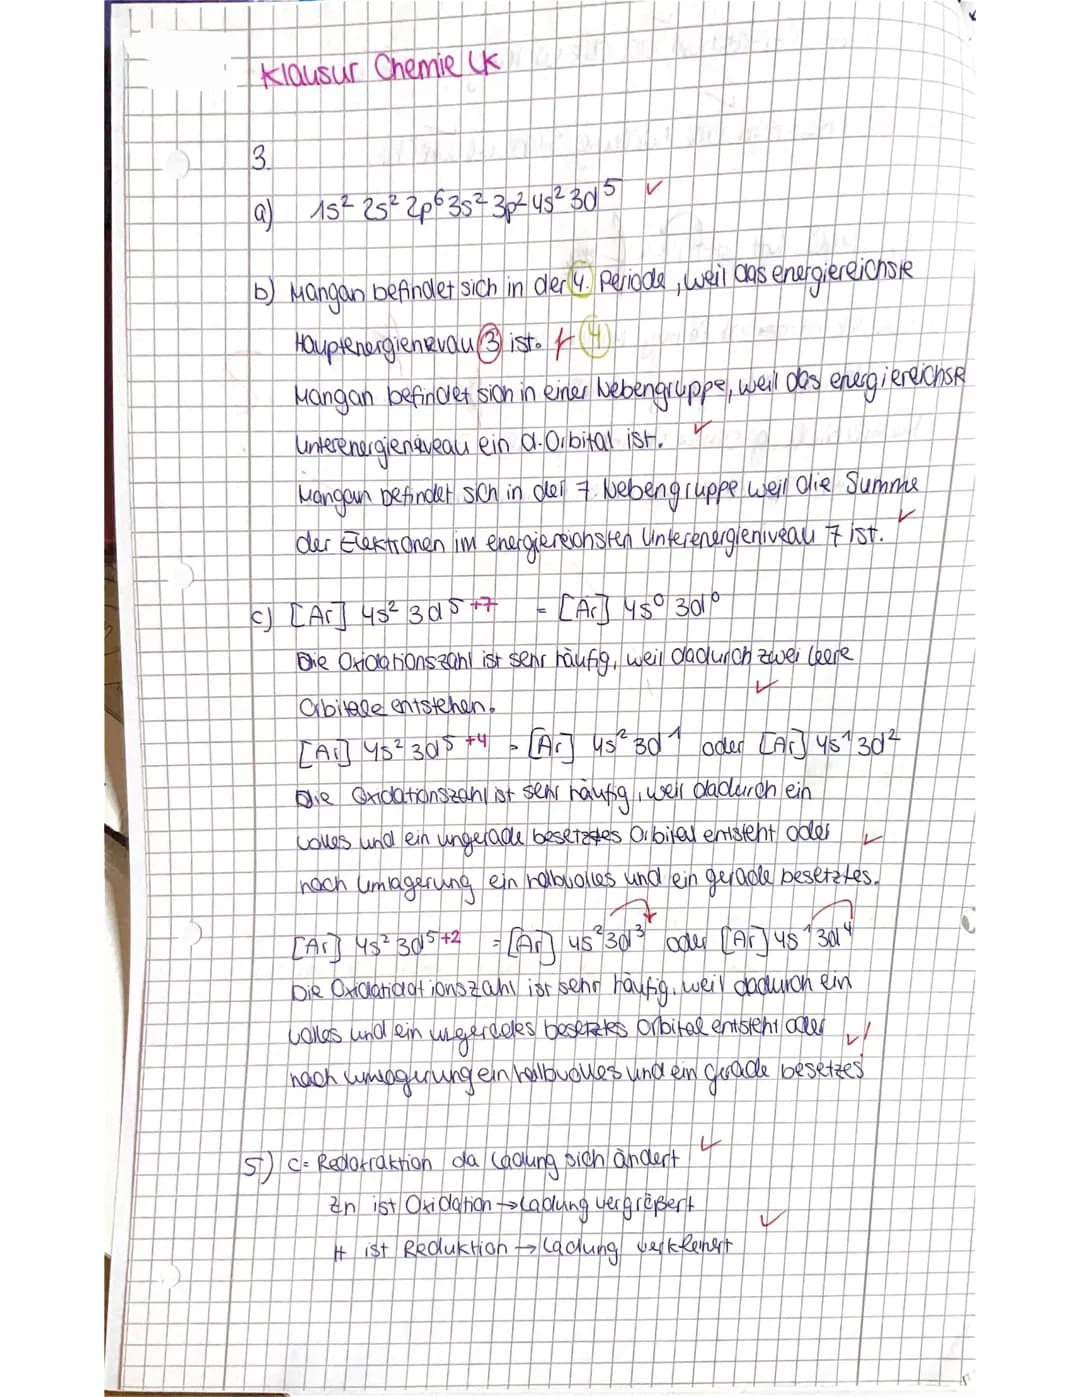 Klausur Chemie LK
3.
a) 1s² 2s² 2p⁶ 3s² 3p² 4s² 3d⁵ ✓
b) Mangan befindet sich in der 4. Periode, weil das energiereichste
Hauptenergieniveau 3 ist. f 4
Mangan befindet sich in einer Nebengruppe, weil das energiereichste
Unterenergieniveau ein d-Orbital ist. ✓
Mangan befindet sich in der 7. Nebengruppe weil die Summe
der Elektronen im energiereichsten Unterenergieniveau 7 ist. ✓
c) [Ar] 4s² 3d⁵ +7 = [Ar] 4s⁰ 3d⁰
Die Oxidationszahl ist sehr häufig, weil dadurch zwei leere
Orbitale entstehen. ✓
[Ar] 4s² 3d⁵ +4 = [Ar] 4s² 3d¹ oder [Ar] 4s¹ 3d²
Die Oxidationszahl ist sehr häufig, weil dadurch ein
volles und ein ungerade besetztes Orbital entsteht oder ✓
nach Umlagerung ein halbvolles und ein gerade besetztes.
[Ar] 4s² 3d⁵ +2 = [Ar] 4s² 3d³ oder [Ar] 4s¹ 3d⁴
Die Oxidatidationszahl ist sehr häufig, weil dadurch ein
volles und ein ungerades besetztes Orbital entsteht oder ✓
nach Umlagerung ein halbvolles und ein gerade besetzes
5) C = Redoxraktion da Ladung sich ändert ✓
Zn ist Oxidation → Ladung vergrößert
H ist Reduktion → Ladung verkleinert ✓